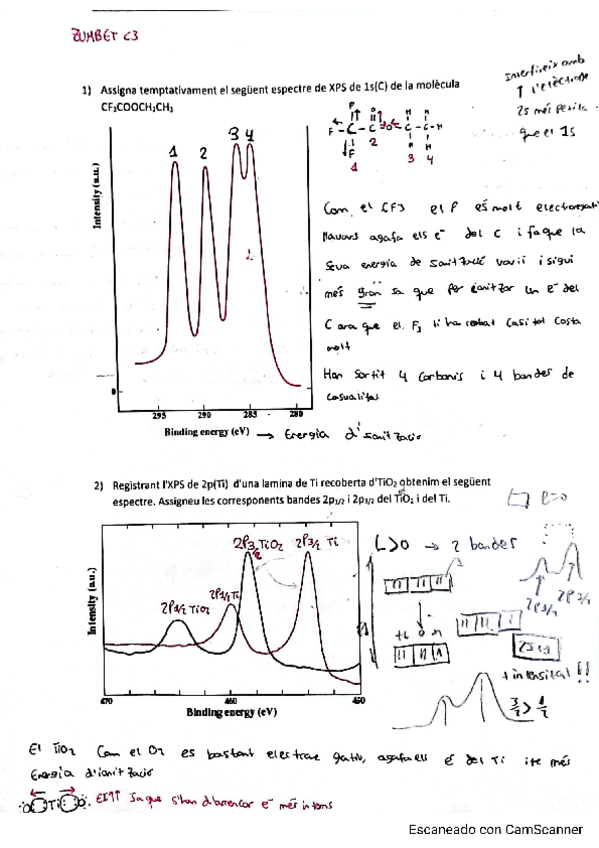 ZUMBET C3
1) Assigna temptativament el següent espectre de XPS de 1s(C) de la molècula
CF₃COOCH₂CH₃
Interfireix amb
↑ l'elèctrode
2s més petita
que el 1s
F O H H
F - C - C - O - C - C - H
F H H
1 2 3 4
1 2 3 4
Intensity (a.u.)
0
295 290 285 280
Binding energy (eV) → Energia d'ionització
Com el CF3 el F és molt electronegatiu
llavors agafa els e⁻ del C i fa que la
seva energia de ionització varii i sigui
més gran ja que per ionitzar un e⁻ del
C ara que el F₃ li ha robat casi tot costa
molt
Han sortit 4 carbonis i 4 bandes de
casualitat
2) Registrant l'XPS de 2p(Ti) d'una lamina de Ti recoberta d'TiO₂ obtenim el següent
espectre. Assigneu les corresponents bandes 2p₁/₂ i 2p₃/₂ del TiO₂ i del Ti.
l=0
2P3/2 TiO2 2P3/2 Ti
2P1/2 TiO2 2P1/2 Ti
L>0 → 2 bandes
+ intensitat !!
3/2 > 1/2
Intensity (a.u.)
470 460 450
Binding energy (eV)
El TiO2 com el O2 es bastant electronegatiu, agafa els e⁻ del Ti i té més
Energia d'ionització
O Ti O EI↑↑ Ja que s'han d'arrencar e⁻ més interns
Escaneado con CamScanner